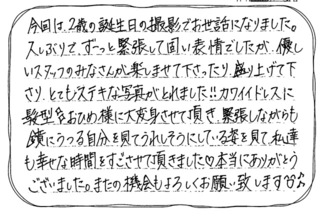 今回は、2歳の誕生日の撮影でお世話になりました。
久しぶりで、ずっと緊張して固い表情でしたが、優し
いスタッフのみなさんが楽しませて下さったり、盛り上げて下
さり、とてもステキな写真がとれました!!カワイイドレスに
髪型もおひめ様に大変身させて頂き、緊張しながらも
鏡にうつる自分を見てうれしそうにしている姿を見て、私達
も幸せな時間をすごさせて頂きました♡本当にありがとう
ございました。またの機会もよろしくお願い致します